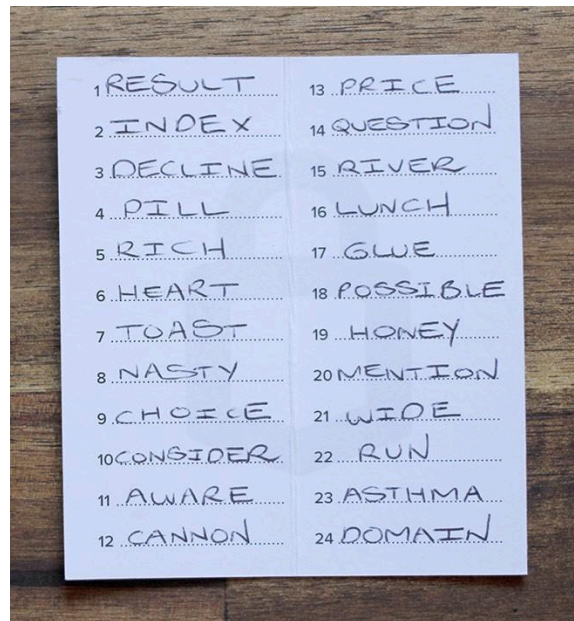 1 RESULT
2 INDEX
3 DECLINE
4 PILL
5 RICH
6 HEART
7 TOAST
8 NASTY
9 CHOICE
10 CONSIDER
11 AWARE
12 CANNON
13 PRICE
14 QUESTION
15 RIVER
16 LUNCH
17 GLUE
18 POSSIBLE
19 HONEY
20 MENTION
21 WIDE
22 RUN
23 ASTHMA
24 DOMAIN